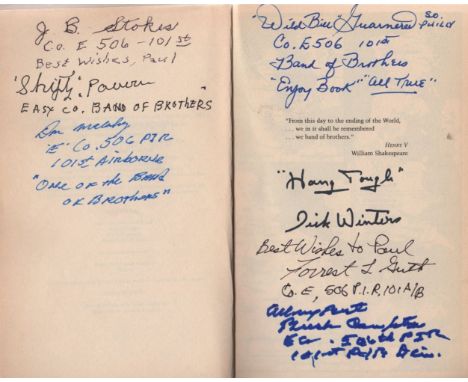 J. B. Stokes
Co. E 506 - 101 st
Best Wishes, Paul
"Shifty" Powers
EASY CO. BAND OF BROTHERS"
Don Malarkey
"E" Co. 506 PIR
101st Airborne
"ONE OF THE BAND
OF BROTHERS"
"Wild Bill" Guarnere SO PHILLY
Co. E 506 101st
Band of Brothers
"Enjoy Book" "All True"
"From this day to the ending of the World,
. . . we in it shall be remembered
. . . we band of brothers."
HENRY V
William Shakespeare
"Hang Tough"
Dick Winters
Best Wishes to Paul
Forrest L Guth
Co. E, 506 P.I.R, 101 A/B
506th PIR